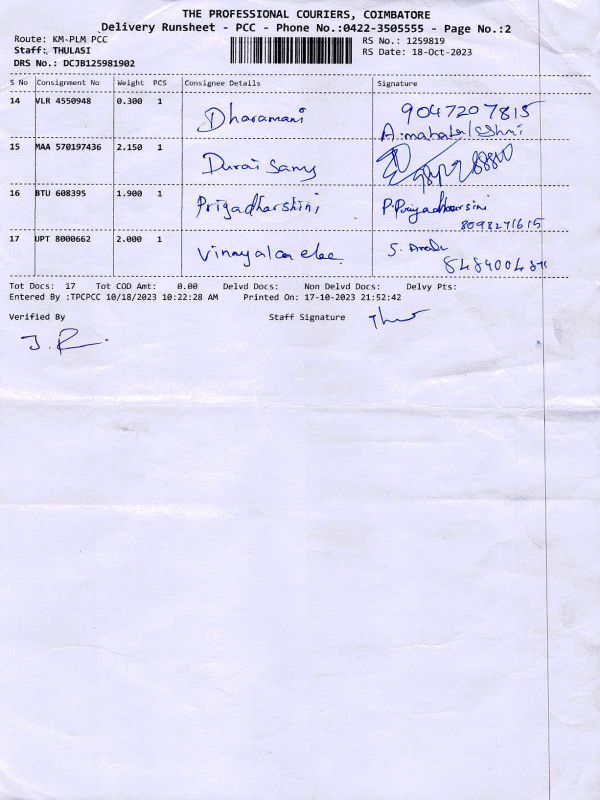 THE PROFESSIONAL COURIERS, COIMBATORE
Delivery Runsheet - PCC - Phone No.:0422-3505555 - Page No.:2
Route: KM-PLM PCC RS No.: 1259819
Staff: THULASI RS Date: 18-Oct-2023
DRS No.: DCJB125981902
S No Consignment No Weight PCS Consignee Details Signature
14 VLR 4550948 0.300 1 Dharamani 9047207815
15 MAA 570197436 2.150 1 Durai Samy
16 BTU 608395 1.900 1 Priyadharshini P.Priyadharsini
8098271615
17 UPT 8000662 2.000 1 Vinayaka elec S.
Tot Docs: 17 Tot COD Amt: 0.00 Delvd Docs: Non Delvd Docs: Delvy Pts:
Entered By :TPCPCC 10/18/2023 10:22:28 AM Printed On: 17-10-2023 21:52:42
Verified By Staff Signature